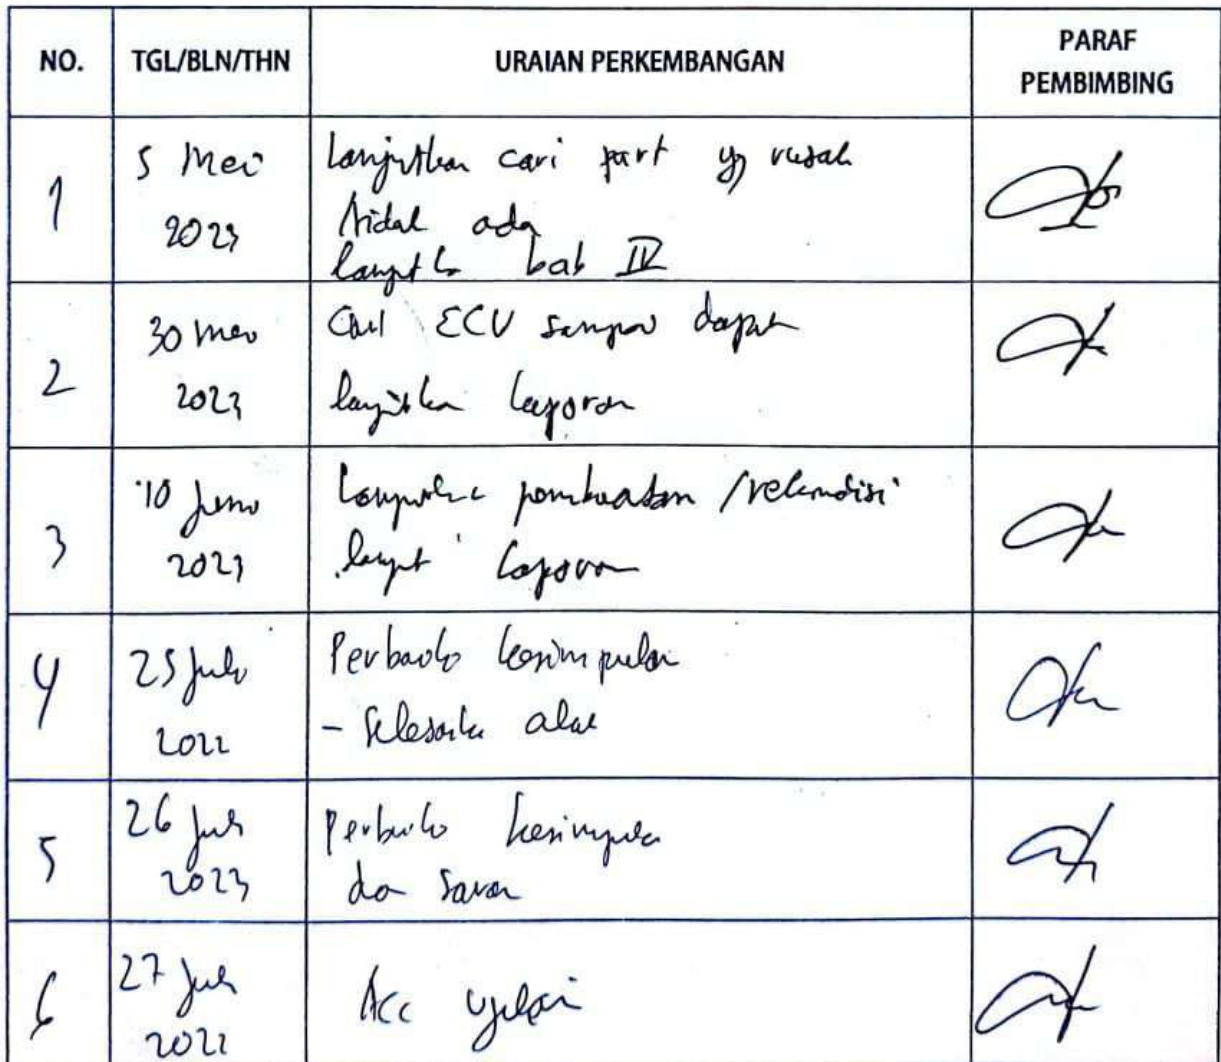 NO. TGL/BLN/THN URAIAN PERKEMBANGAN PARAF PEMBIMBING
1 5 Mei 2023 Lanjutkan cari part yg rusak
tidak ada
lanjutkan bab IV
2 30 Mei 2023 Cari ECU sampai dapat
lanjutkan laporan
3 10 Juni 2023 Lanjutkan pembuatan / rekondisi
lanjut laporan
4 25 Juli 2022 Perbaiki kesimpulan
- Selesaika alat
5 26 Juli 2023 Perbaiki kesimpulan
dan saran
6 27 Juli 2022 Acc ujian